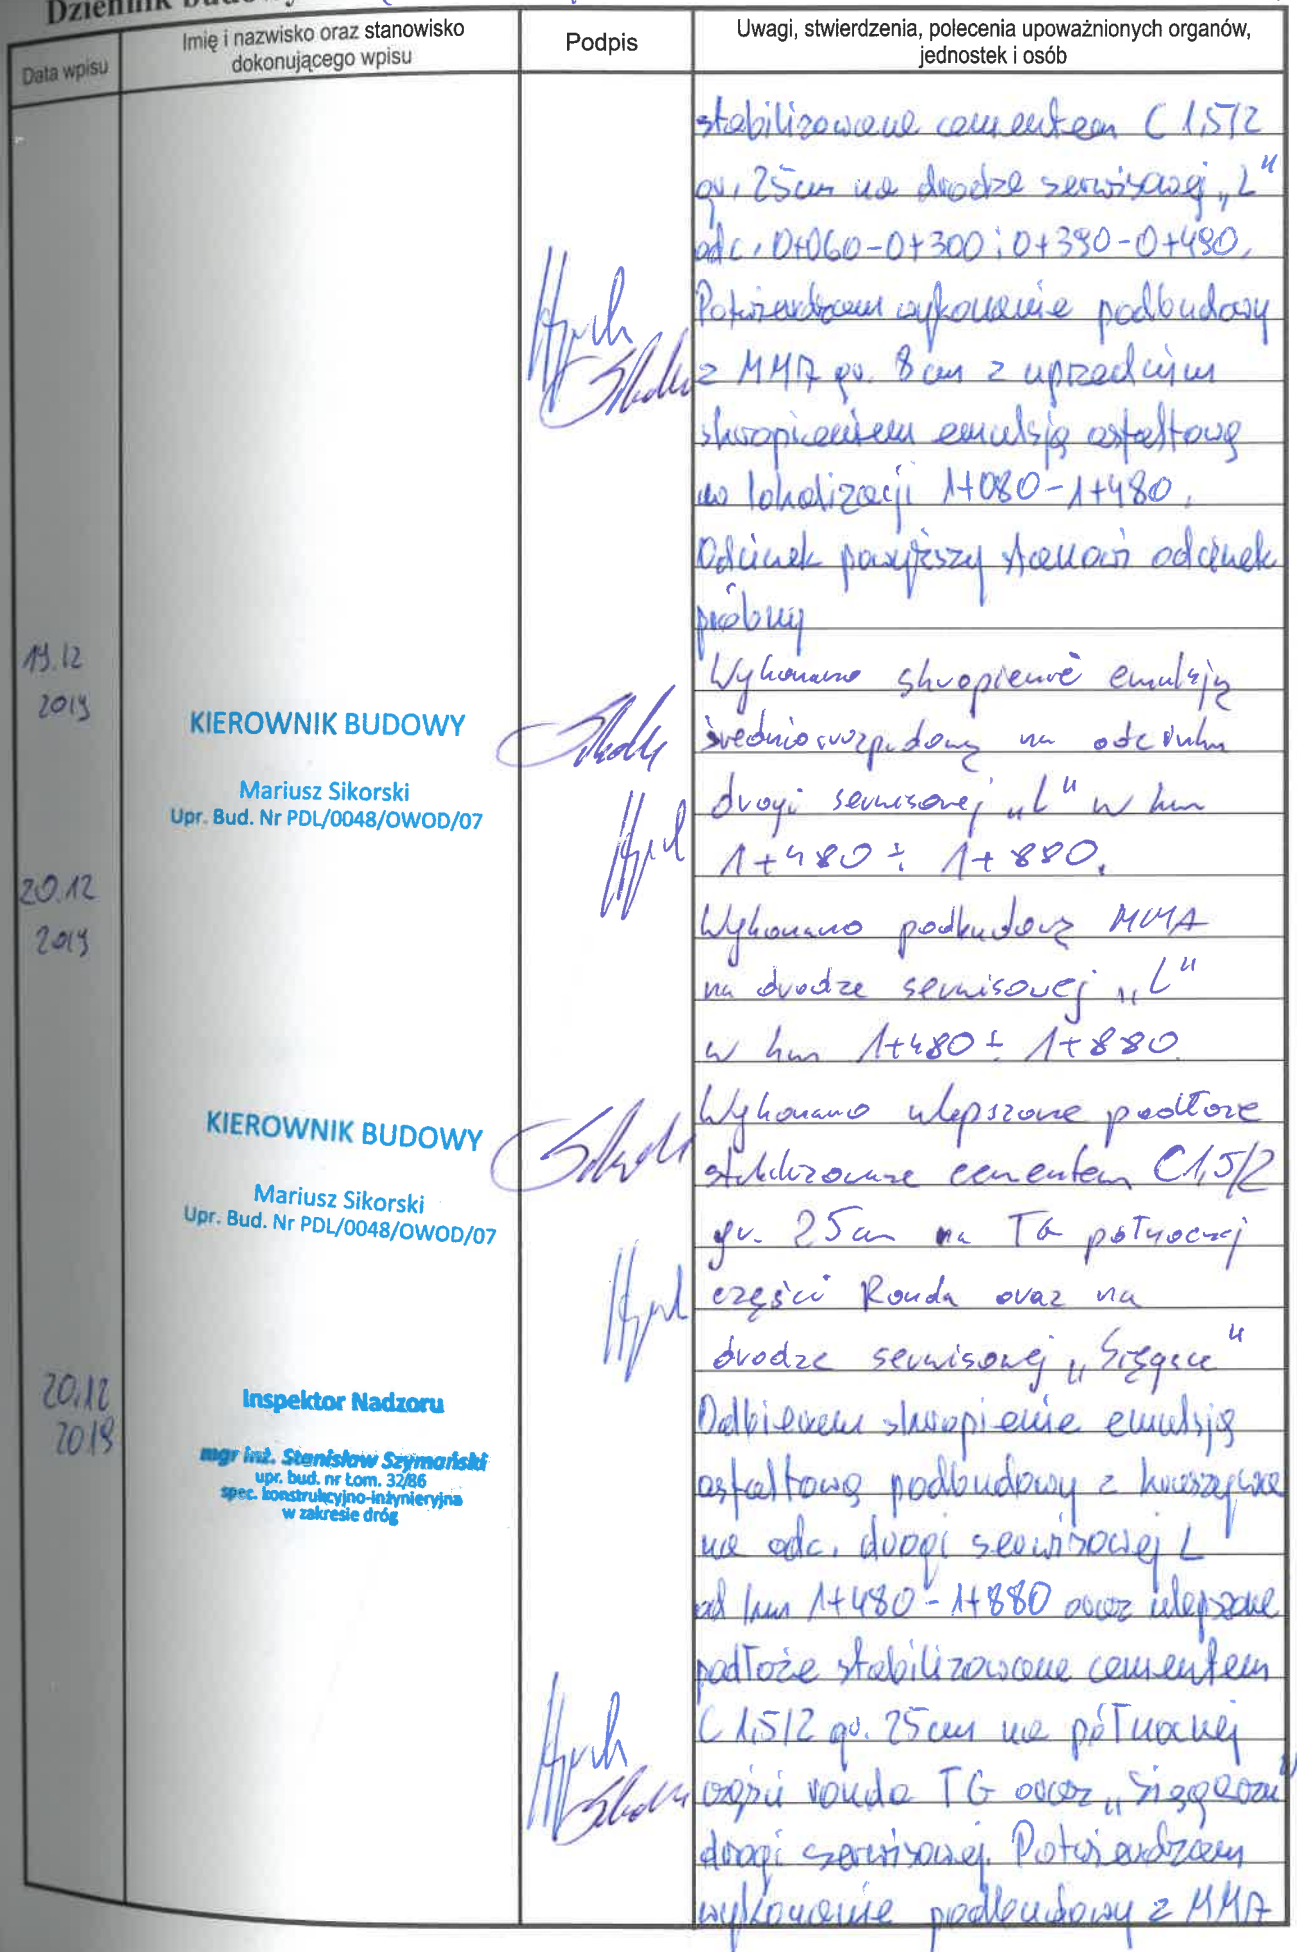 Dziennik budowy
Data wpisu
Imię i nazwisko oraz stanowisko
dokonującego wpisu
Podpis
Uwagi, stwierdzenia, polecenia upoważnionych organów,
jednostek i osób
stabilizowane cementem C 1,5/2
gr. 25cm na drodze serwisowej „L"
odc. 0+060-0+300 i 0+390-0+490.
Potwierdzam wykonanie podbudowy
z MMA gr. 8 cm z uprzednim
skropieniem emulsją asfaltową
w lokalizacji 1+080-1+480.
Odcinek powyższy stanowi odcinek
próbny
19.12
2019
KIEROWNIK BUDOWY
Mariusz Sikorski
Upr. Bud. Nr PDL/0048/OWOD/07
Wykonano skropienie emulsją
średniorozpadową na odcinku
drogi serwisowej „L" w km
1+480 ÷ 1+880.
20.12
2019
Wykonano podbudowę MMA
na drodze serwisowej „L"
w km 1+480 ÷ 1+880
KIEROWNIK BUDOWY
Mariusz Sikorski
Upr. Bud. Nr PDL/0048/OWOD/07
Wykonano ulepszone podłoże
stabilizowane cementem C1,5/2
gr. 25cm na TG północnej
części Ronda oraz na
drodze serwisowej „Sięgacz"
20.12
2019
Inspektor Nadzoru
mgr inż. Stanisław Szymański
upr. bud. nr Łom. 32/86
spec. konstrukcyjno-inżynieryjna
w zakresie dróg
Odbieram skropienie emulsją
asfaltową podbudowy z kruszywa
na odc. drogi serwisowej L
od km 1+480-1+880 oraz ulepszone
podłoże stabilizowane cementem
C 1,5/2 gr. 25cm na północnej
części ronda TG oraz „Sięgaczu"
drogi serwisowej. Potwierdzam
wykonanie podbudowy z MMA